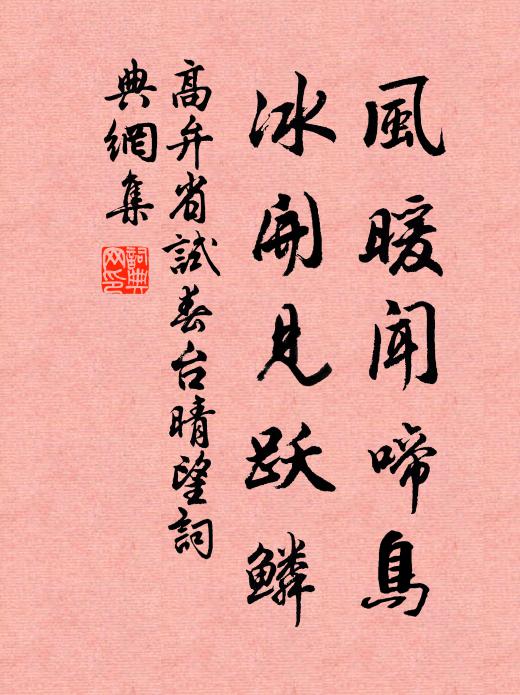 風暖聞啼鳥
冰開見跃鱗
高弁省試春台晴望詞
典網集
詞典
网印